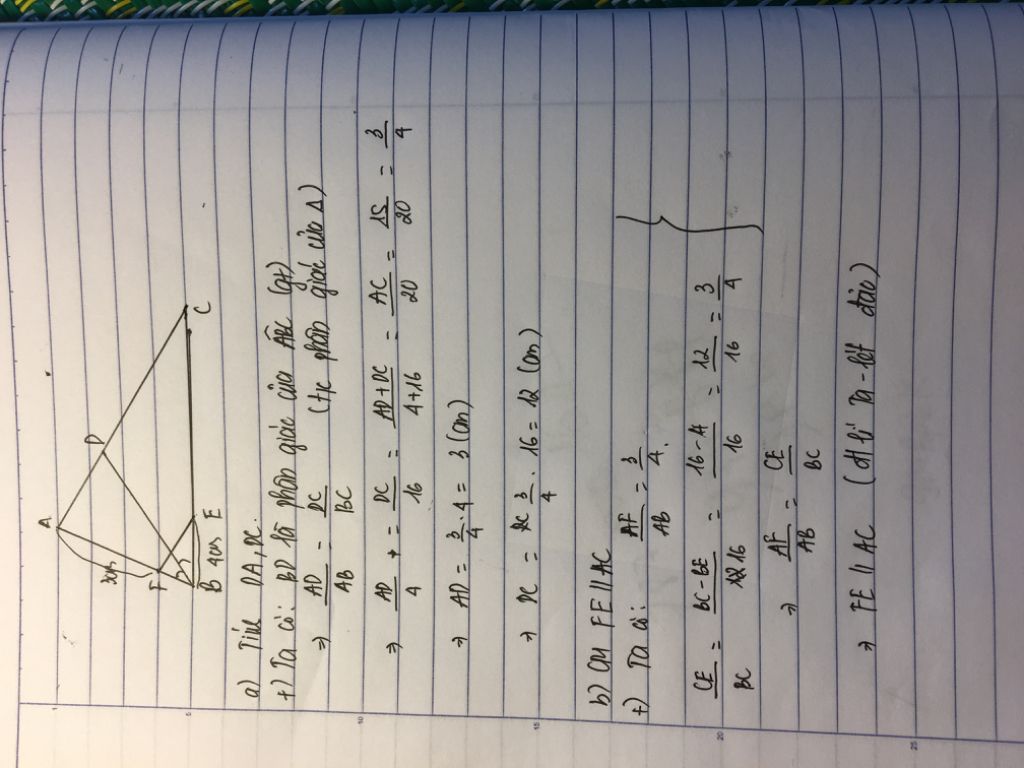 A
D
3cm
F
B
4cm
E
C
a) Tính DA, DC.
+) Ta có: BD là phân giác của ABC (gt)
⇒ AD/AB = DC/BC (t/c phân giác của Δ)
⇒ AD/4 = DC/16 = AD+DC/4+16 = AC/20 = 15/20 = 3/4
⇒ AD = 3/4 . 4 = 3 (cm)
⇒ DC = 3/4 . 16 = 12 (cm)
b) CM FE // AC
+) Ta có: AF/AB = 3/4.
CE/BC = BC-BE/16 = 16-4/16 = 12/16 = 3/4
⇒ AF/AB = CE/BC
⇒ FE // AC (đl li Ta-lét đảo)
5
10
15
20
25